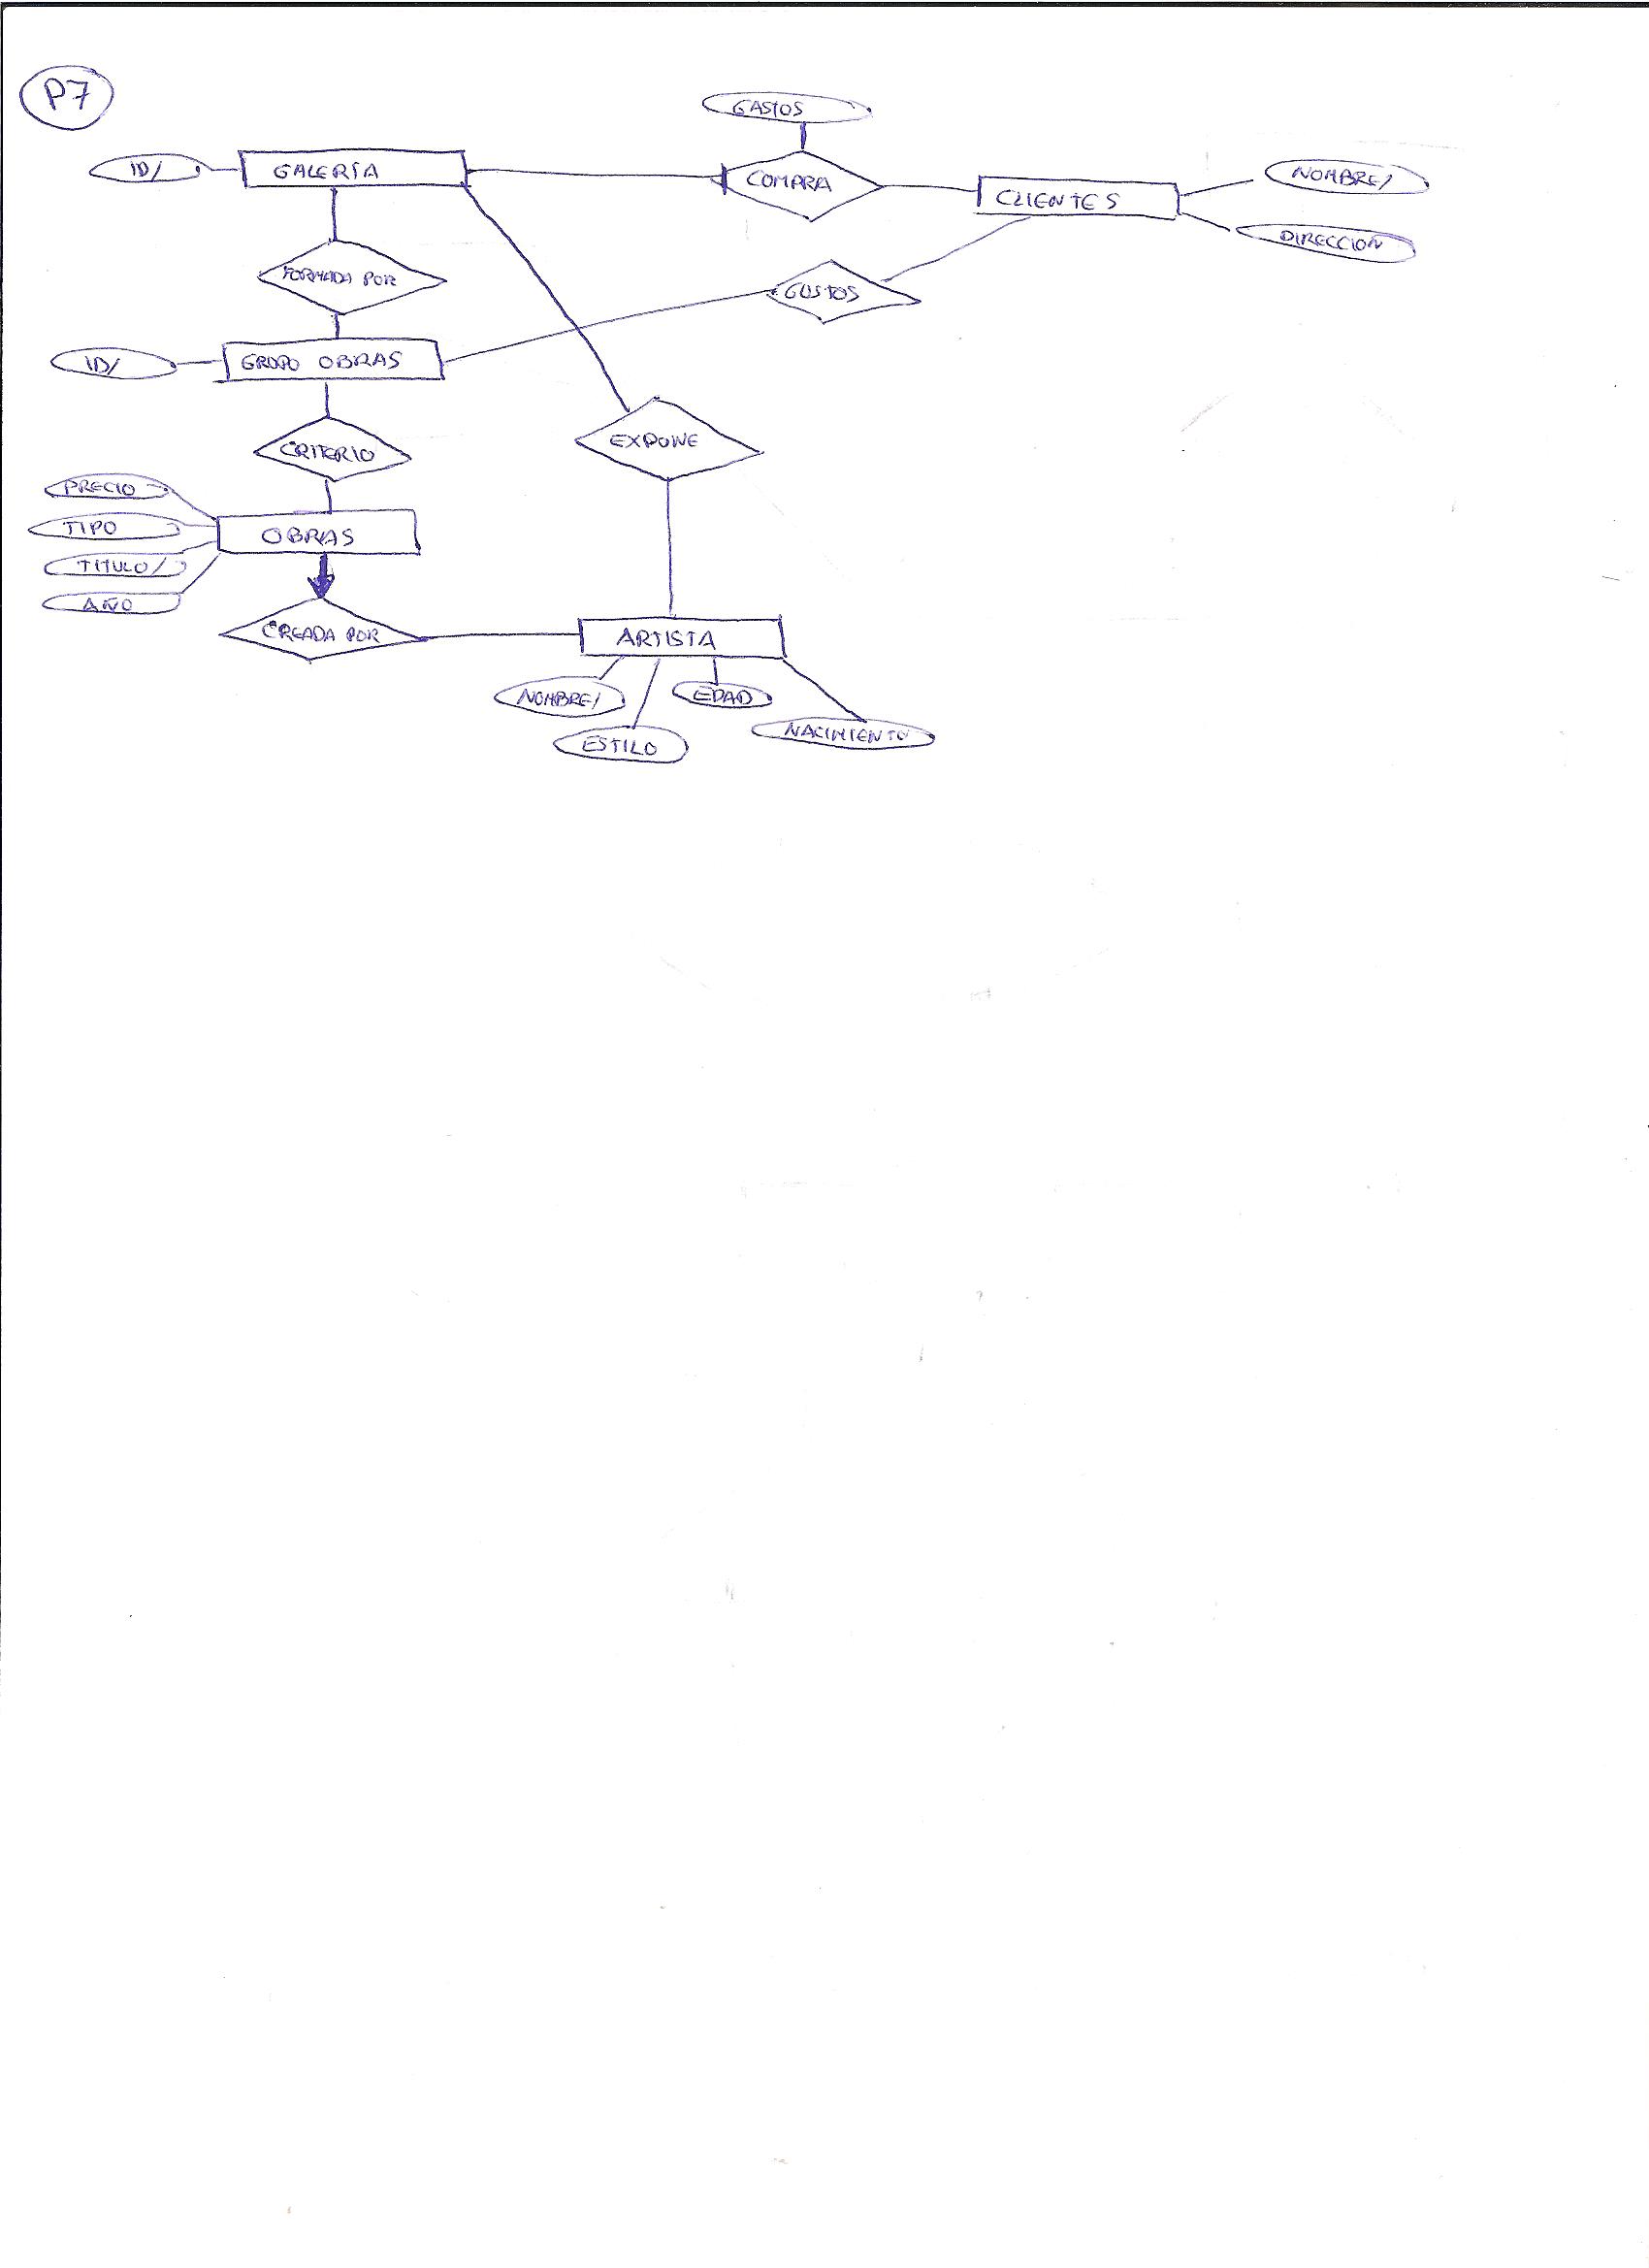 P7
GASTOS
ID/
GALERÍA
COMPRA
CLIENTES
NOMBRE/
DIRECCION
FORMADA POR
GUSTOS
ID/
GRUPO OBRAS
CRITERIO
EXPONE
PRECIO
TIPO
TITULO/
AÑO
OBRAS
CREADA POR
ARTISTA
NOMBRE/
EDAD
ESTILO
NACIMIENTO